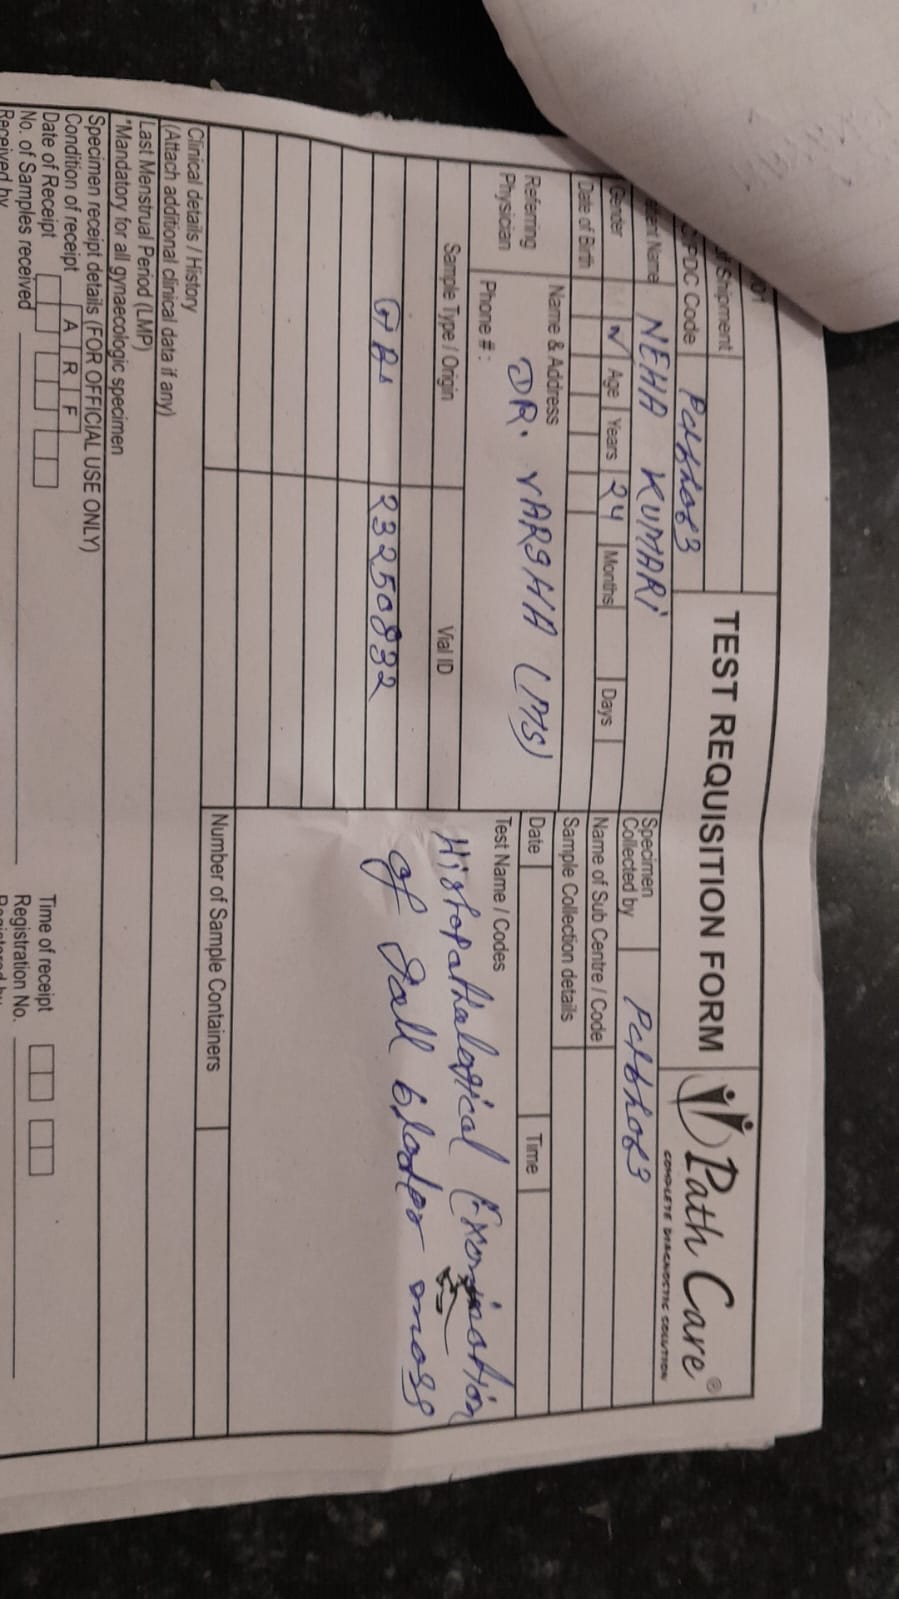 TEST REQUISITION FORM
Path Care®
COMPLETE DIAGNOSTIC SOLUTION
Shipment
PDC Code
Patient Name NEHA KUMARI
Gender Age Years 24 Months Days
Date of Birth
Referring Physician
Name & Address DR. VARSHA (MS)
Phone # :
Specimen Collected by
Name of Sub Centre / Code
Sample Collection details
Date Time
Sample Type / Origin Vial ID
23250832
Test Name / Codes
Histopathological Examination
of Gall bladder mass
Number of Sample Containers
Clinical details / History
(Attach additional clinical data if any)
Last Menstrual Period (LMP)
*Mandatory for all gynaecologic specimen
Specimen receipt details (FOR OFFICIAL USE ONLY)
Condition of receipt A R F
Date of Receipt Time of receipt
No. of Samples received Registration No.
Received by Registered by